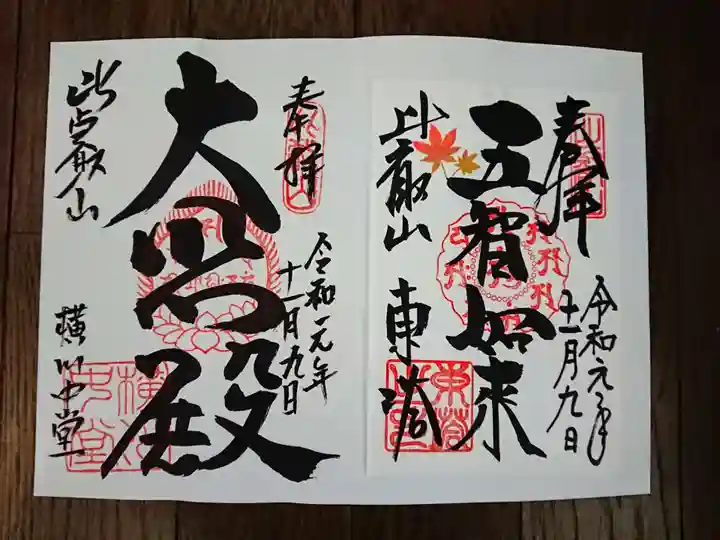 奉拝
令和元年
十一月九日
五智如来
比叡山
東塔
奉拝
令和元年
十一月九日
大悲殿
比叡山
横川中堂